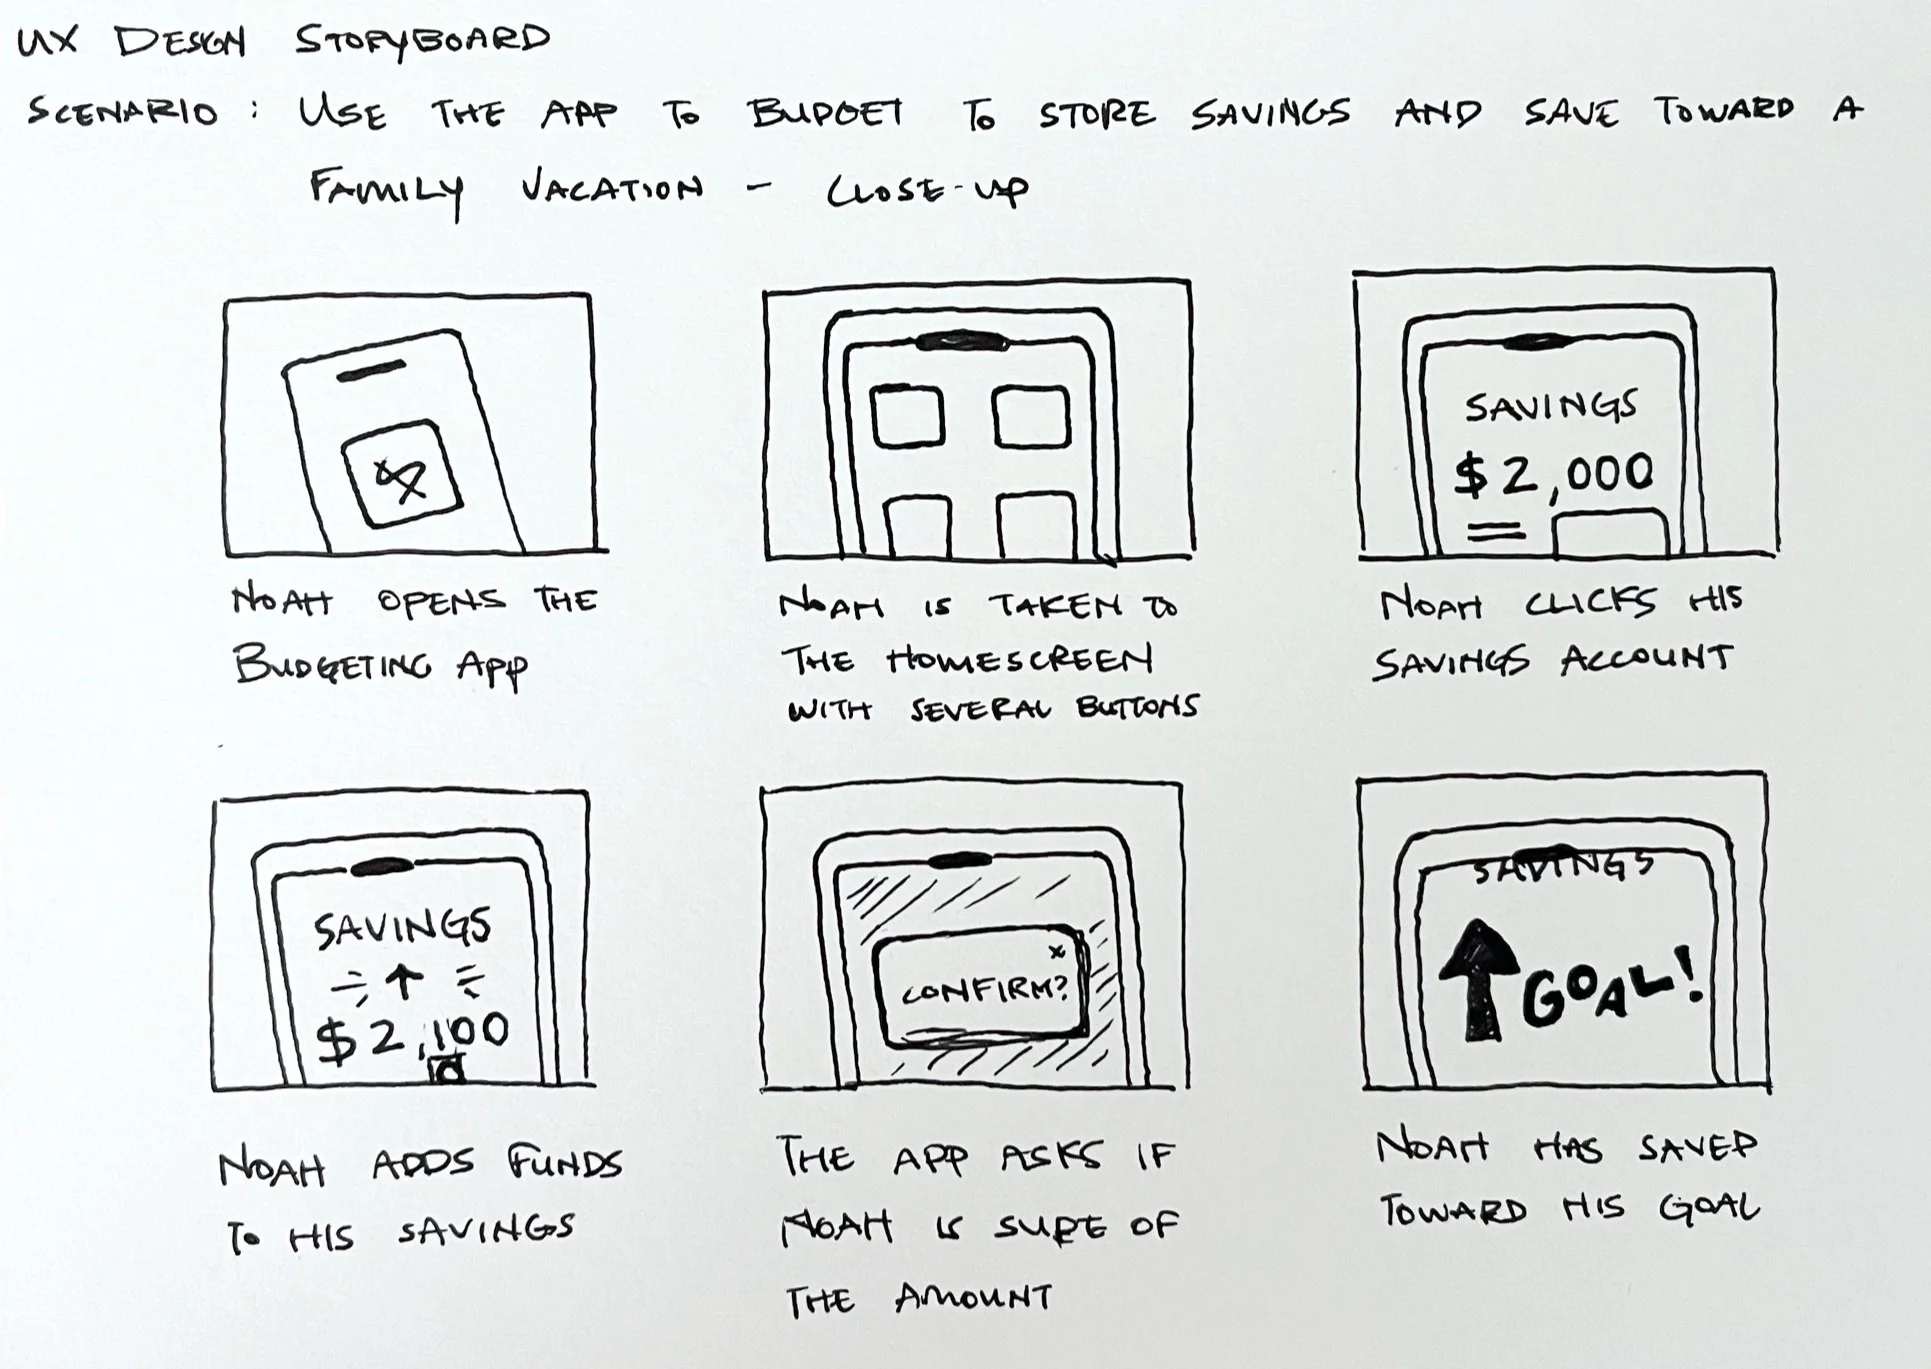 UX DESIGN STORYBOARD
SCENARIO : USE THE APP TO BUDGET TO STORE SAVINGS AND SAVE TOWARD A
FAMILY VACATION - CLOSE-UP
NOAH OPENS THE
BUDGETING APP
NOAH IS TAKEN TO
THE HOMESCREEN
WITH SEVERAL BUTTONS
SAVINGS
$2,000
NOAH CLICKS HIS
SAVINGS ACCOUNT
SAVINGS
$2,100
NOAH ADDS FUNDS
TO HIS SAVINGS
x
CONFIRM?
THE APP ASKS IF
NOAH IS SURE OF
THE AMOUNT
SAVINGS
GOAL!
NOAH HAS SAVED
TOWARD HIS GOAL